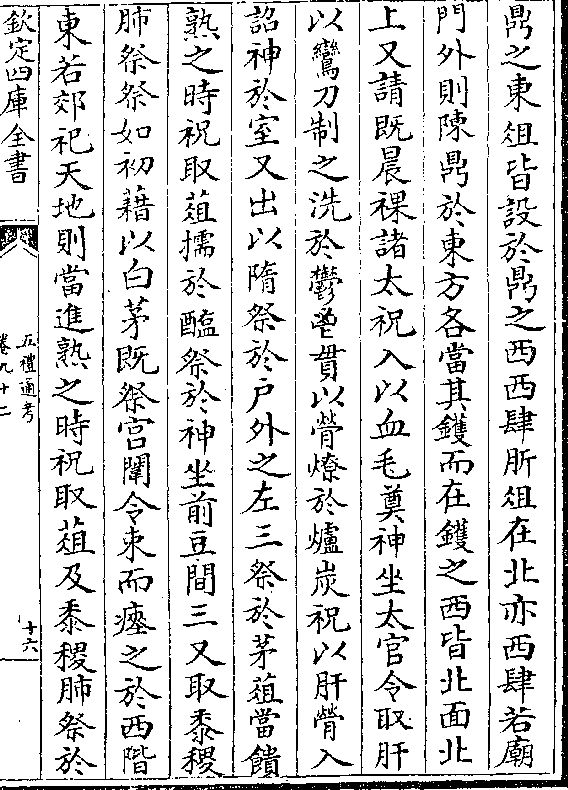 鼎之東俎皆設於鼎之西西肆肵俎在北亦西肆若廟
門外則陳鼎於東方各當其鑊而在鑊之西皆北面北
上又請既晨祼諸太祝入以血毛奠神坐太官令取肝
以鸞刀制之洗於鬱鬯貫以膋燎於爐炭祝以肝膋入
詔神於室又出以隋祭於戶外之左三祭於茅蒩當饋
熟之時祝取蒩擩於醢祭於神坐前豆間三又取黍稷
肺祭祭如初藉以白茅既祭宮闈令束而瘞之於西階
東若郊祀天地則當進熟之時祝取蒩及黍稷肺祭於
欽定四庫全書
五禮通考
卷九十二
十六